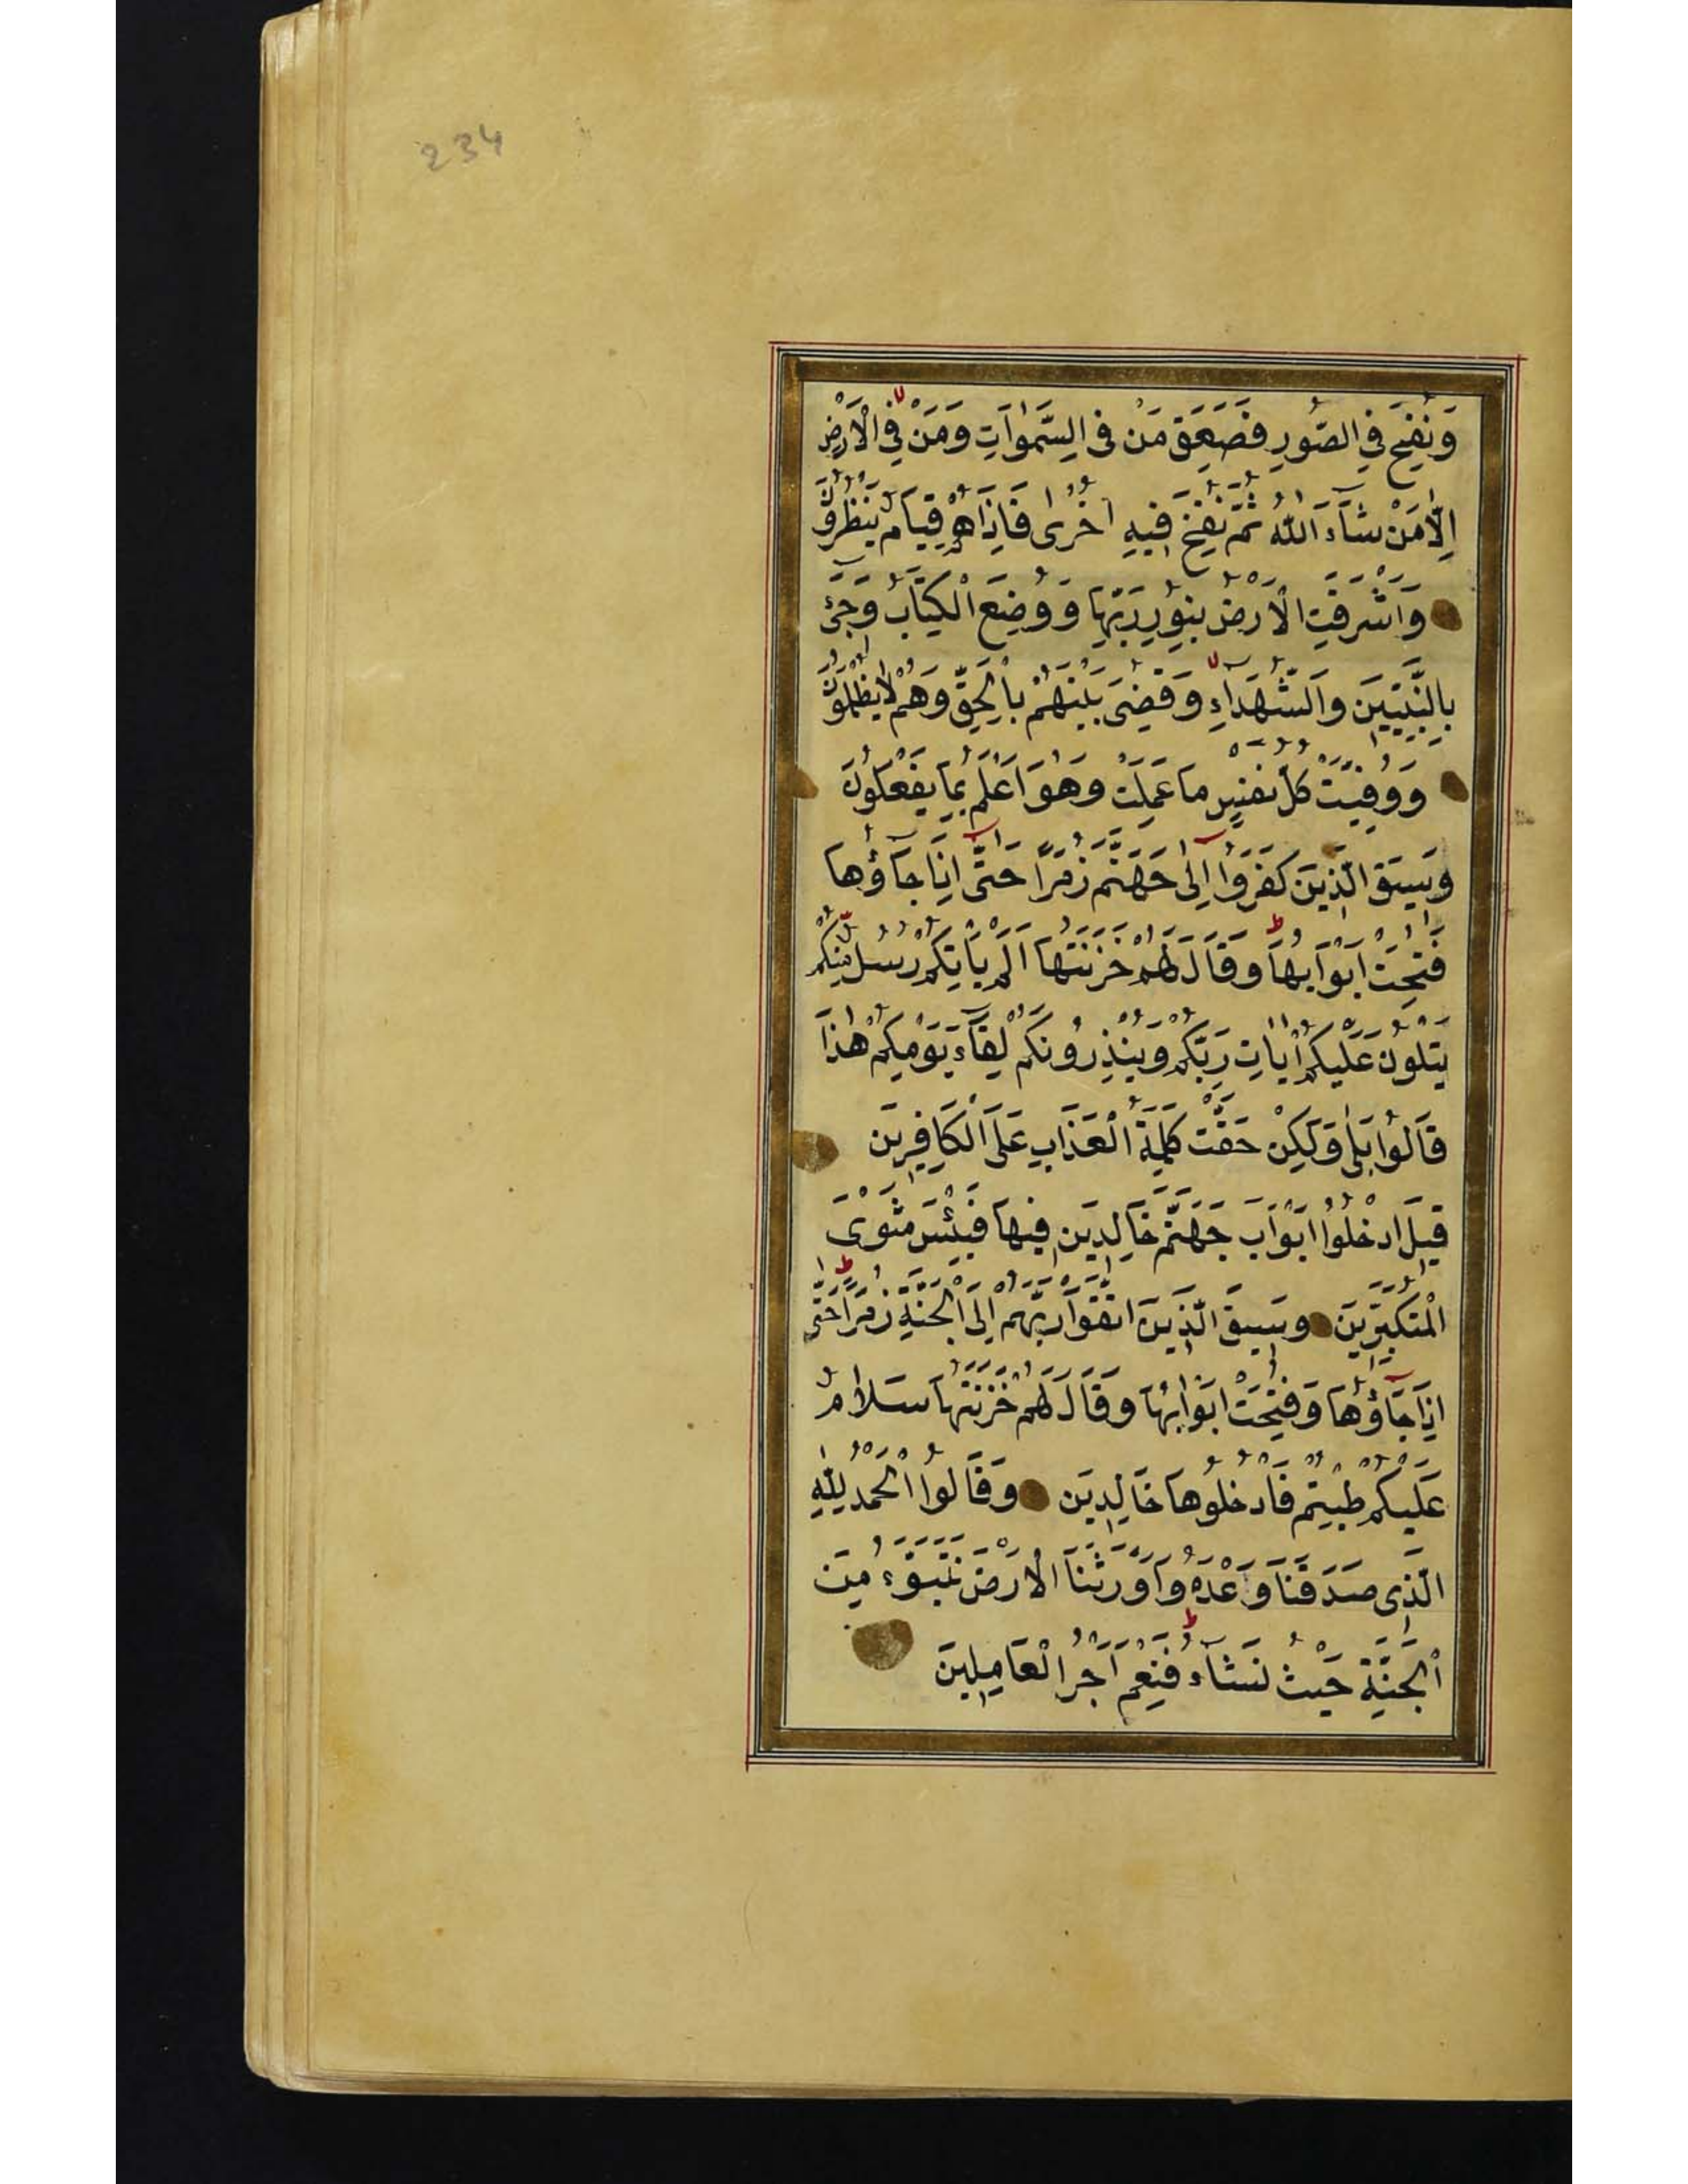 234
وَنُفِخَ فِي الصُّورِ فَصَعِقَ مَنْ فِي السَّمٰوَاتِ وَمَنْ فِي الْاَرْضِ
اِلَّا مَنْ شَآءَ اللّٰهُ ثُمَّ نُفِخَ فِيهِ اُخْرٰى فَاِذَاهُمْ قِيَامٌ يَنْظُرُونَ
وَاَشْرَقَتِ الْاَرْضُ بِنُورِ رَبِّهَا وَوُضِعَ الْكِتَابُ وَجِيءَ
بِالنَّبِيّٖينَ وَالشُّهَدَآءِ وَقُضِىَ بَيْنَهُمْ بِالْحَقِّ وَهُمْ لَا يُظْلَمُونَ
وَوُفِّيَتْ كُلُّ نَفْسٍ مَا عَمِلَتْ وَهُوَ اَعْلَمُ بِمَا يَفْعَلُونَ
وَسِيقَ الَّذِينَ كَفَرُوٓا اِلٰى جَهَنَّمَ زُمَرًا حَتّٰٓى اِذَا جَآؤُهَا
فُتِحَتْ اَبْوَابُهَا وَقَالَ لَهُمْ خَزَنَتُهَآ اَلَمْ يَاْتِكُمْ رُسُلٌ مِنْكُمْ
يَتْلُونَ عَلَيْكُمْ اٰيَاتِ رَبِّكُمْ وَيُنْذِرُونَكُمْ لِقَآءَ يَوْمِكُمْ هٰذَا
قَالُوا بَلٰى وَلٰكِنْ حَقَّتْ كَلِمَةُ الْعَذَابِ عَلَى الْكَافِرِينَ
قِيلَ ادْخُلُوٓا اَبْوَابَ جَهَنَّمَ خَالِدِينَ فِيهَا فَبِئْسَ مَثْوَى
الْمُتَكَبِّرِينَ وَسِيقَ الَّذِينَ اتَّقَوْا رَبَّهُمْ اِلَى الْجَنَّةِ زُمَرًا حَتّٰٓى
اِذَا جَآؤُهَا وَفُتِحَتْ اَبْوَابُهَا وَقَالَ لَهُمْ خَزَنَتُهَا سَلَامٌ
عَلَيْكُمْ طِبْتُمْ فَادْخُلُوهَا خَالِدِينَ وَقَالُوا الْحَمْدُ لِلّٰهِ
الَّذِى صَدَقَنَا وَعْدَهُ وَاَوْرَثَنَا الْاَرْضَ نَتَبَوَّءُ مِنَ
الْجَنَّةِ حَيْثُ نَشَآءُ فَنِعْمَ اَجْرُ الْعَامِلِينَ